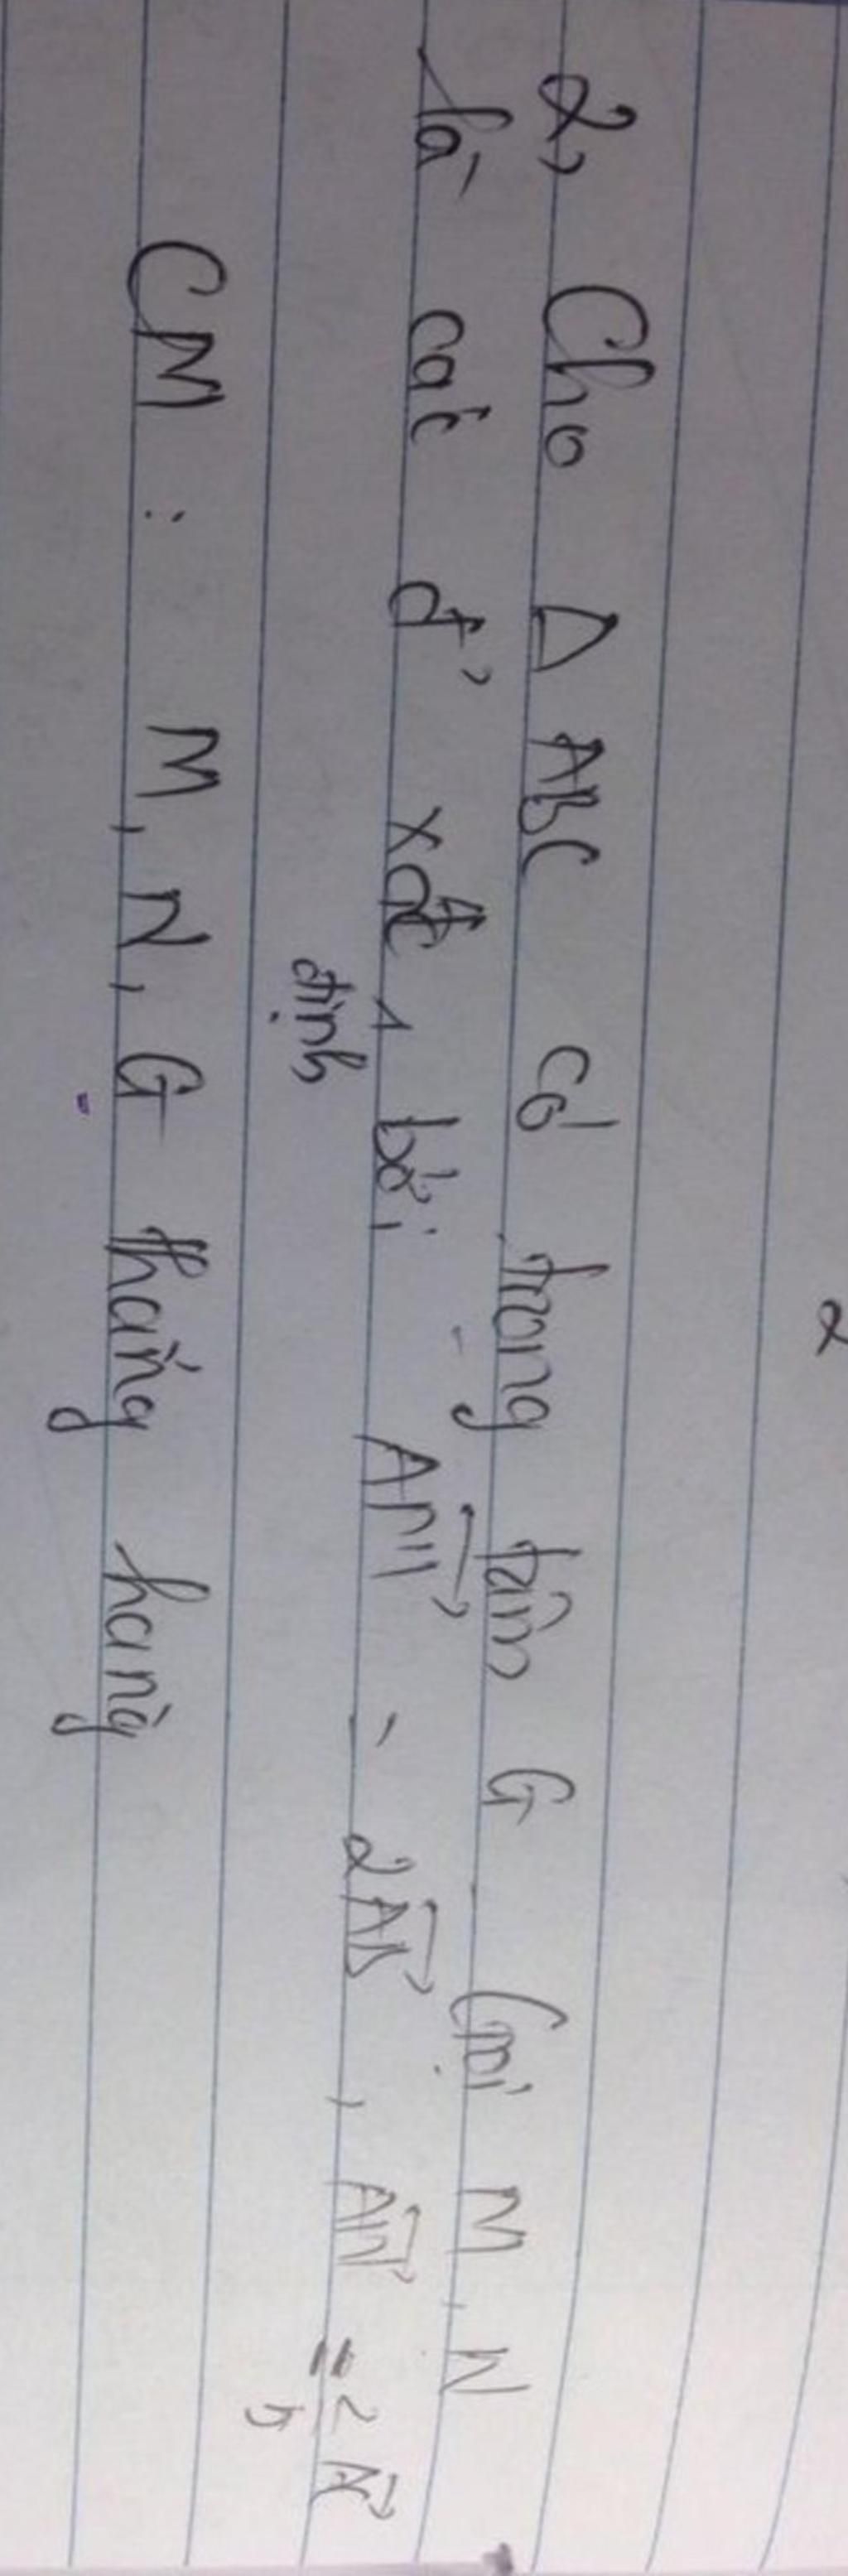 2
2, Cho Δ ABC có trọng tâm G Gọi M, N
là các đ' xác ^ bởi AM = 2AB, AN = 2/5 AC
định
CM : M, N, G thẳng hàng